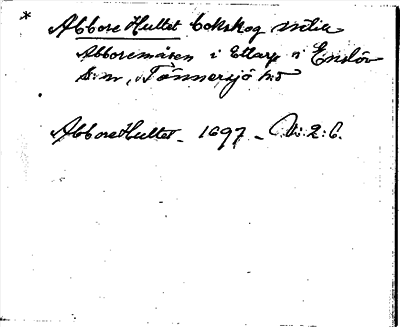 * AbboreHultet bokskog vid
Abboremåsen i Ettarp i Enslöv
s:n, Tönnersjö h:d
AbboreHultet - 1697 - N:2:6.